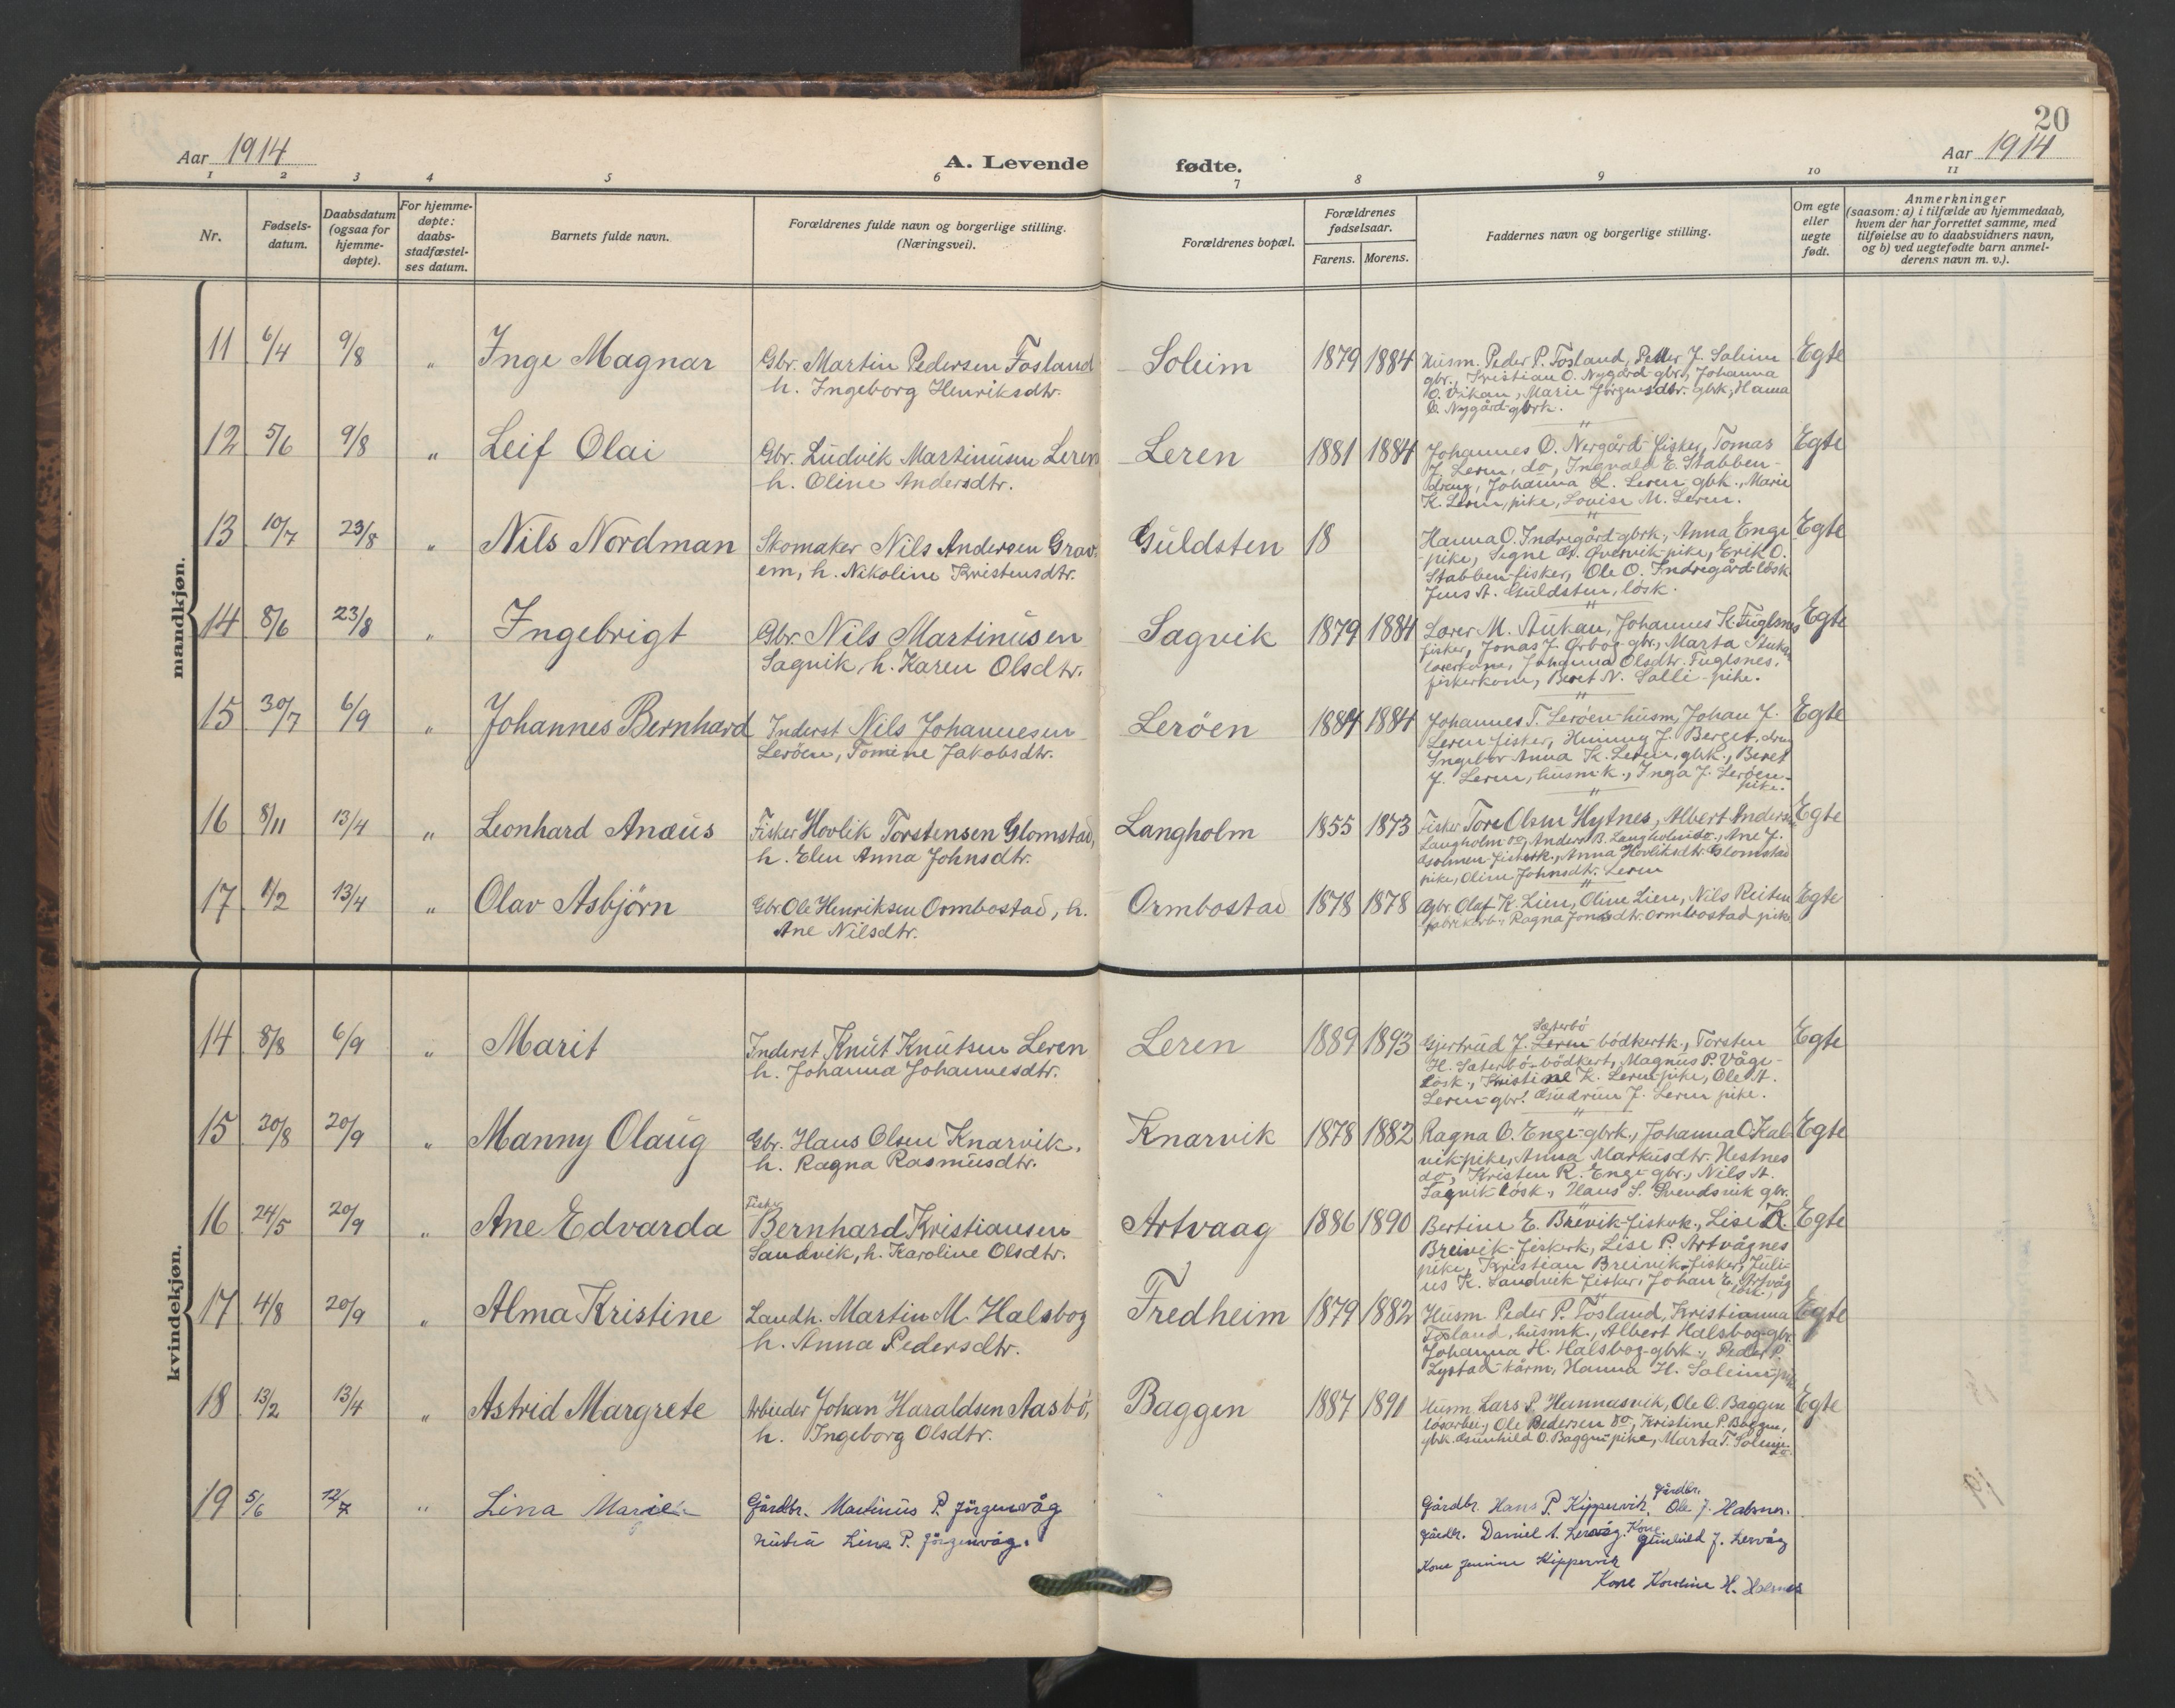 20
Aar 1914
A. Levende fødte.
Aar 1914
1 2 3 4 5 6 7 8 9 10 11
Nr.
Fødsels-
datum.
Daabsdatum
(ogsaa for
hjemme-
døpte).
For hjemme-
døpte:
daabs-
stadfæstel-
ses datum.
Barnets fulde navn.
Forældrenes fulde navn og borgerlige stilling.
(Næringsvei).
Forældrenes bopæl.
Forældrenes
fødselsaar.
Farens. Morens.
Faddernes navn og borgerlige stilling.
Om egte
eller
uegte
født.
Anmerkninger
(saasom: a) i tilfælde av hjemmedaab,
hvem der har forrettet samme, med
tilføielse av to daabsvidners navn,
og b) ved uegtefødte barn anmel-
derens navn m. v.).
mandkjøn.
11 6/4 9/8 " Inge Magnar
Gbr. Martin Pedersen Fosland
h. Ingeborg Henriksdtr.
Soleim 1879 1884
Husm. Peder P. Fosland, Petter J. Soleim
gbr., Kristian O. Nygård gbr., Johanna
O. Vikan, Marie Jørgensdtr. gbrk, Hanna
O. Nygård gbrk.
Egte
12 5/6 9/8 " Leif Olai
Gbr. Ludvik Martinusen Leren
h. Oline Andersdtr.
Leren 1881 1884
Johannes O. Nergård fisker, Tomas
J. Leren, do, Ingvald E. Stabben-
dreng, Johanna L. Leren gbk., Marie
K. Leren, pike, Lovise M. Leren.
Egte
13 10/7 23/8 " Nils Nordman
Skomaker Nils Andersen Grav,
em, h. Nikoline Kristensdtr.
Guldsten 18
Hanna O. Indregård gbrk., Anna Enge
-pike, Signe Kvervik-pike, Erik O.
Stabben-fisker, Ole O. Indregård-løsk.
Jens A. Guldsten, løsk.
Egte
14 8/6 23/8 " Ingebrigt
Gbr. Nils Martinusen
Sagvik, h. Karen Olsdtr.
Sagvik 1879 1884
Lærer M. Aukan, Johannes K. Fuglsnes
fisker, Jonas J. Ørbog gbr., Marta
lærerkone, Johanna Olsdtr. Fuglsnes,
fiskerkone, Beret N. Salli-pike.
Egte
15 30/7 6/9 " Johannes Bernhard
Inderst Nils Johannesen
Lerøen, Tomine Jakobsdtr.
Lerøen 1884 1884
Johannes T. Lerøen-husm, Johan J.
Leren fisker, Henning J. Berget, dren
Ingebor Anna K. Leren, gbk., Beret
J. Leren, husmk., Inga J. Lerøen-
pike.
Egte
16 8/11 13/4 " Leonhard Anæus
Fisker Hovlik Torstensen Glomstad,
h. Elen Anna Johnsdtr.
Langholm 1855 1873
Fisker Tore Olsen Hytnes, Albert Anders
Langholm og Anders B. Langholm do., Ane J.
fiskerk., Anna Hovliksdtr. Glomstad
pike, Oline Johnsdtr. Leren
Egte
17 1/2 13/4 " Olav Asbjørn
Gbr. Ole Henriksen Ormbostad, h.
Ane Nilsdtr.
Ormbostad 1878 1878
Gbr. Olaf K. Lien, Oline Lien, Nils Reiten
fabrikarb., Ragna Jonasdtr. Ormbostad pike
Egte
kvindekjøn.
14 8/8 6/9 " Marit
Inderst Knut Knutsen Leren
h. Johanna Johannesdtr.
Leren 1889 1893
Sæterbö
Gjertrud J. Leren-bödkertk., Torsten
H. Saterbö-bödkert, Magnus P. Våge-
løsk., Kristine K. Leren pike, Ole A.
Leren-gbr. Gudrun J. Leren pike.
Egte
15 20/8 20/9 " Manny Olaug
Gbr. Hans Olsen Knarvik,
h. Ragna Rasmusdtr.
Knarvik 1878 1882
Ragna O. Enge-gbrk., Johanna O. Kal-
vik pike, Anna Markusdtr. Hestnes
do, Kristen R. Enge-gbr., Nils A.
Sagvik-løsk., Hans S. Svendsvik gbr.
Egte
16 24/5 20/9 " Ane Edvarda
Fisker
Bernhard Kristiansen
Sandvik, h. Karoline Olsdtr.
Artvaag 1886 1890
Bertine E. Brevik-fiskerk., Lise K.
Breivik-fiskerk, Lise P. Artvågnes
pike, Kristian Breivik-fisker, Juli-
us K. Sandvik fisker, Johan E. Artvåg
løsk.
Egte
17 4/8 20/9 " Alma Kristine
Landh. Martin M. Halsbog
h. Anna Pedersdtr.
Fredheim 1879 1882
Husm Peder P. Fosland, Kristianna
Fosland, husmk., Albert Halsbog-gbr.
Johanna H. Halsbog-gbrk., Peder P.
Lystad-kårm, Hanna H. Soleim-pike
Egte
18 13/2 13/4 " Astrid Margrete
Arbeider Johan Haraldsen Aasbö,
h. Ingeborg Olsdtr.
Baggen 1887 1891
Husm. Lars P. Hennasvik, Ole O. Baggen
løsarbei., Ole Pedersen do, Kristine P. Baggen,
gbk. Gunhild O. Baggen-pike, Marta T. Soleim
do.
Egte
19 5/6 12/7 " Lina Marie
Gårdbr. Martinus P. Jörgenvåg
hustru Lina P. Jörgenvåg.
Gårdbr. Hans P. Kippervik, Gårdbr. Ole J. Halsnes.
Gårdbr. Daniel A. Lervåg. Kone Gunhild J. Lervåg
Kone Jensine Kippervik
Kone Karoline H. Halsnes